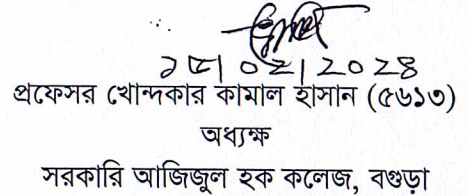 ১৫|০২|২০২৪
প্রফেসর খোন্দকার কামাল হাসান (৫৬১৩)
অধ্যক্ষ
সরকারি আজিজুল হক কলেজ, বগুড়া